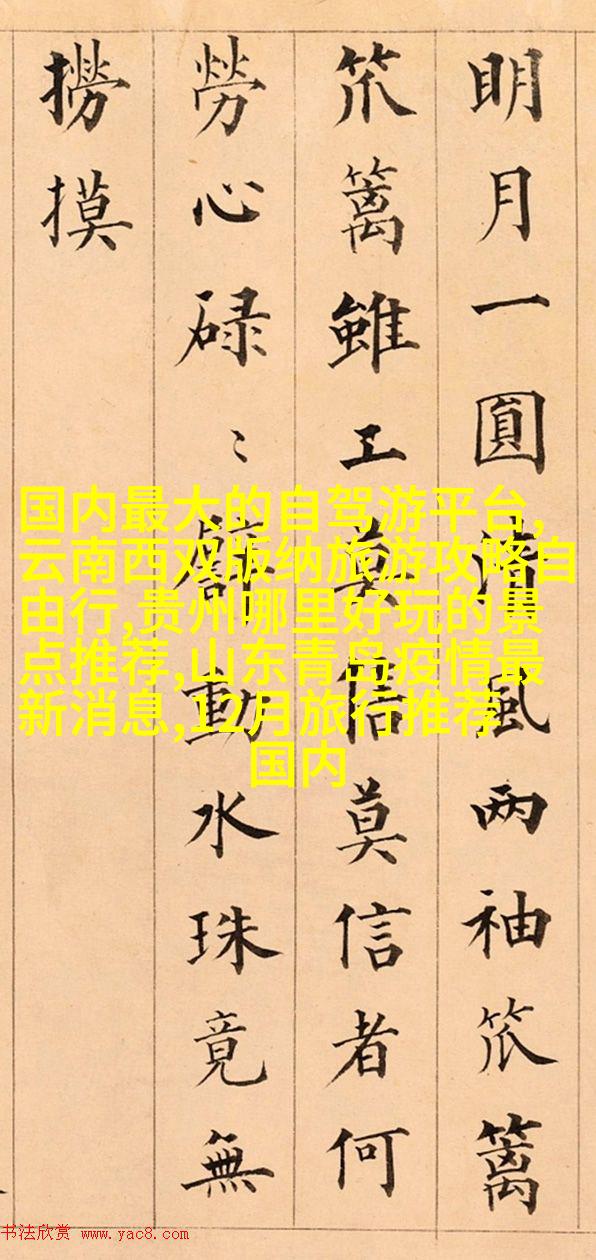 明月一圓清風两袖笊篱
笊篱雖工莫信莫信者何
勞心碌〻動水珠竟無
撈摸
国内最大的自驾游平台,
云南西双版纳旅游攻略自
由行,贵州哪里好玩的景
点推荐,山东青岛疫情最
新消息,12月旅行推荐
国内
书法欣赏 www.yac8.com